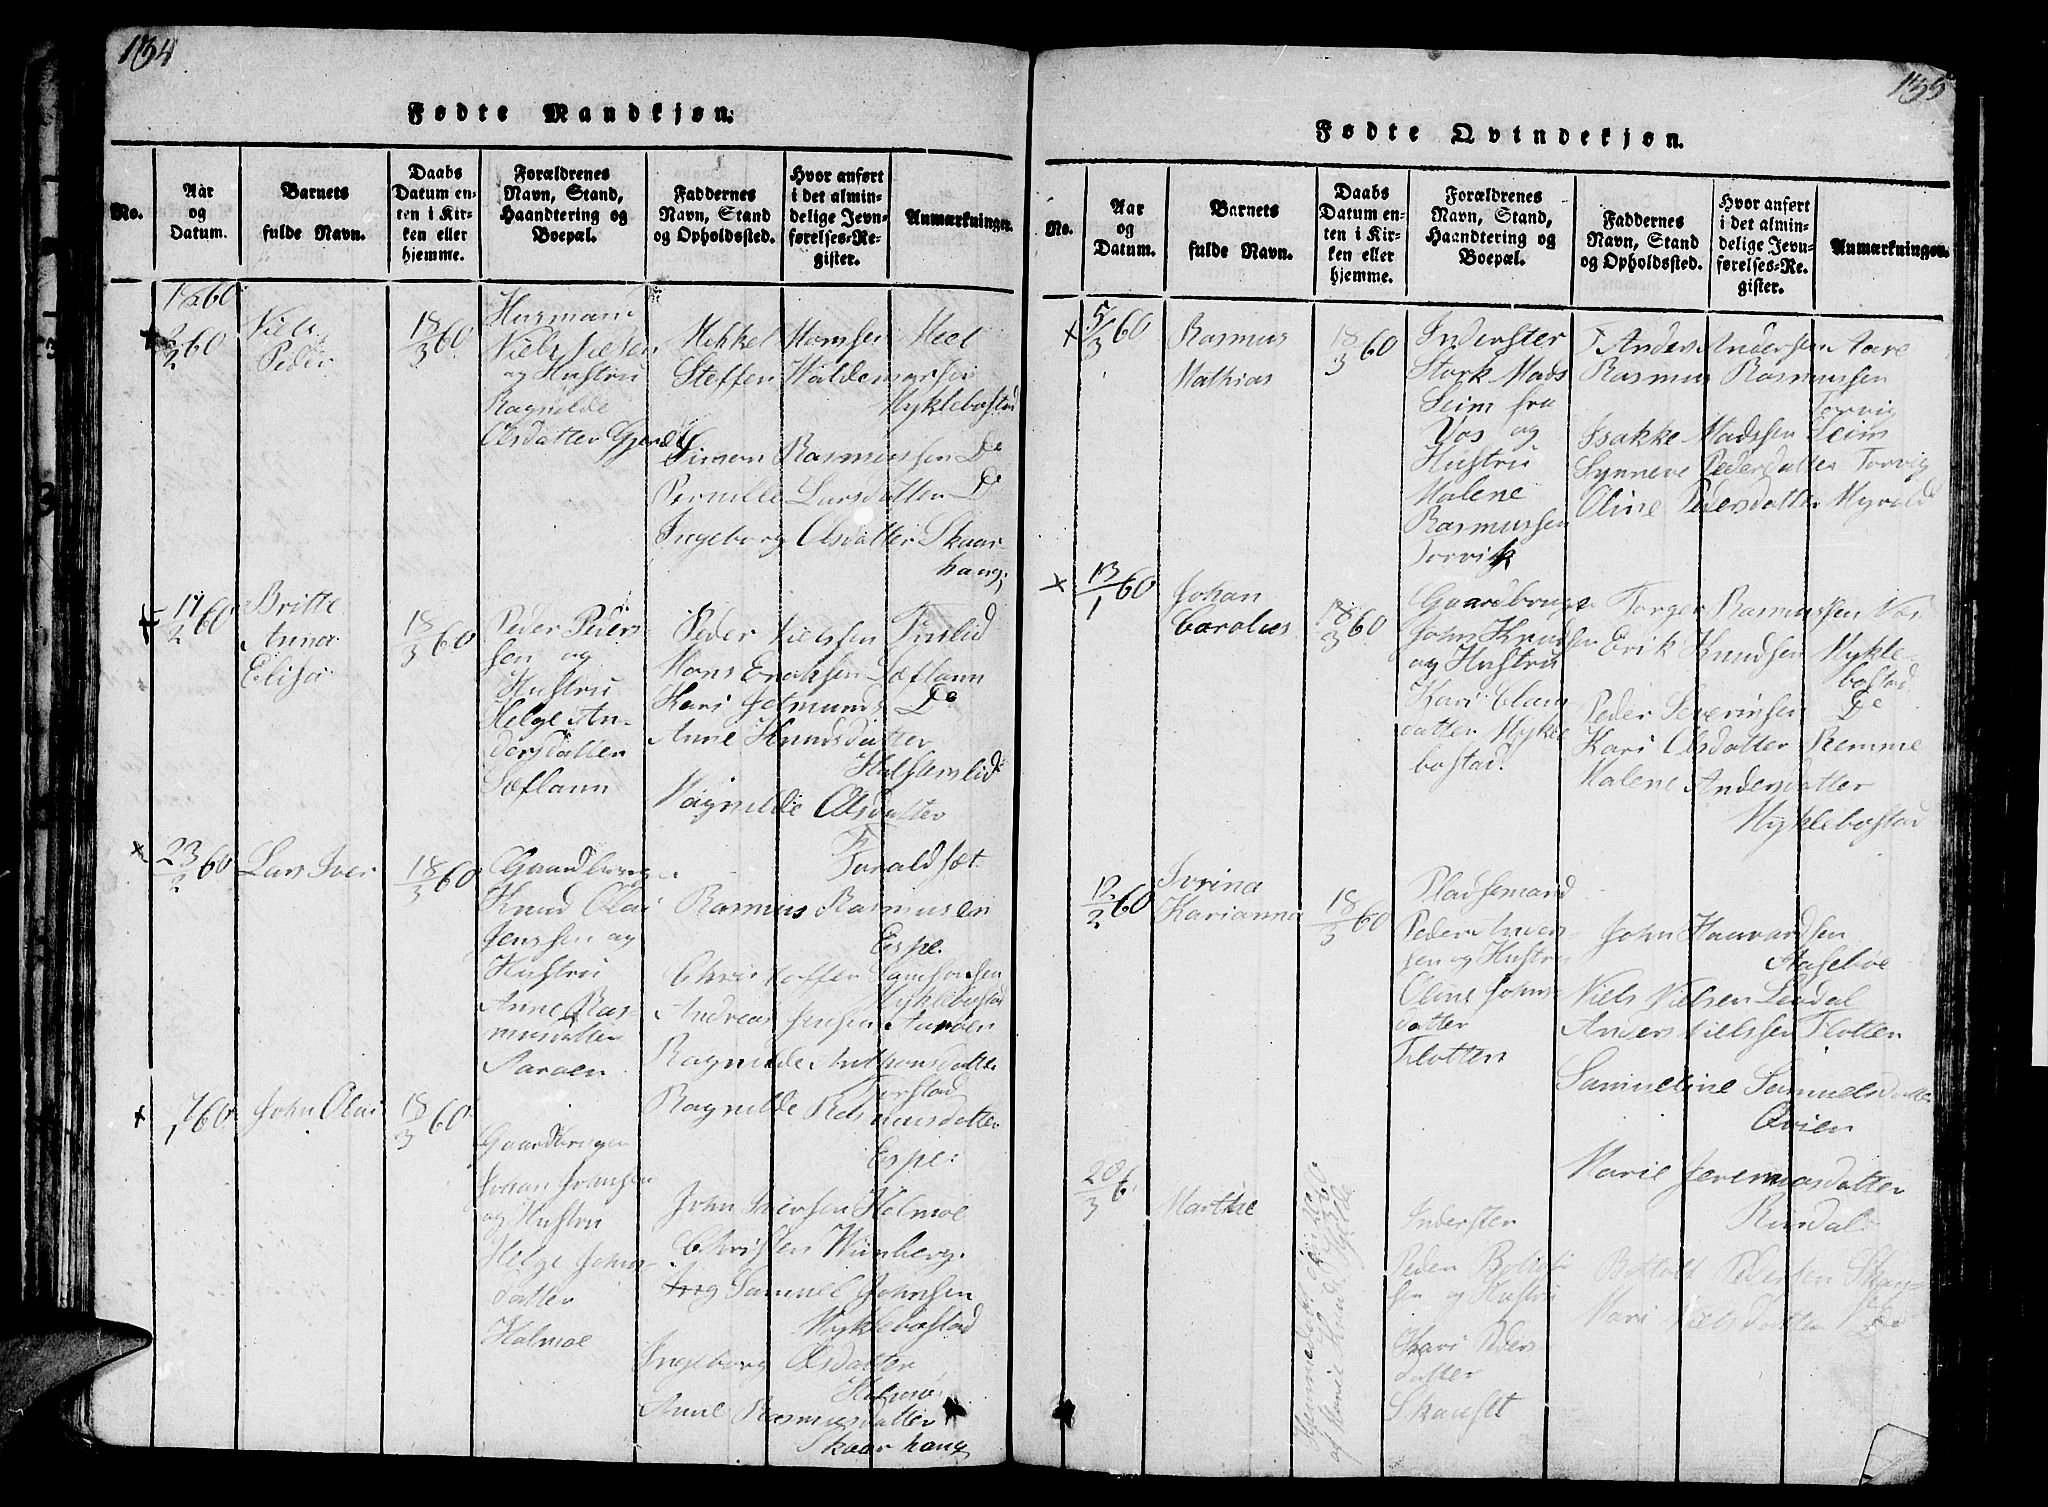 134
Fødte Mandkjøn.
No.
Aar og Datum.
Barnets fulde Navn.
Daabs Datum enten i Kirken eller hjemme.
Forældrenes Navn, Stand, Haandtering og Boepæl.
Faddernes Navn, Stand og Opholdssted.
Hvor anført i det almindelige Jevnførelses-Register.
Anmærkninger.
1860
2/2 60
Niels
Peder
18/3 60
Husmand
Niels
og Hustru
Ragnilde
Olsdatter
Mikkel Hansen
Steffen Waldemarsen
Myklebostad
Simon Rasmussen Do
Pernille Larsdatter Do
Ingeborg Olsdatter Skaar-
haug.
11/2 60
Britte
Anna
Elisa
18/3 60
Peder Peder-
sen og
Hustru
Helge An-
dersdatter
Sæflann
Peder Nielssen
Mons Sæflann
Kari Jetmunds Do
Anne Knudsdatter
Ragnilde Olsdatter
Taraldsæt.
23/2 60
Lars Iver
18/3 60
Gaardbruger
Knud Olai
Jenssen og
Hustru
Anne Ras-
musdatter
Aaraen
Rasmus Rasmussen
Espe.
Christoffer Samsonsen
Myklebostad
Andreas Jensen Aaraen
Ragnilde Anthonsdatter
Torstad
Ragnilde Rasmusdatter
Espe.
7/1 60
John Olai
18/3 60
Gaardbruger
Johan Johnsen
og Hustru
Helge Johns-
datter
Holmøe
John Iversen Holmøe
Christen Wiinberg.
Samuel Johnsen
Myklebostad
Ingeborg Olsdatter
Holmø
Anne Rasmusdatter
Skaarhaug
135
Fødte Qvindekjøn.
No.
Aar og Datum.
Barnets fulde Navn.
Daabs Datum enten i Kirken eller hjemme.
Forældrenes Navn, Stand, Haandtering og Boepæl.
Faddernes Navn, Stand og Opholdssted.
Hvor anført i det almindelige Jevnførelses-Register.
Anmærkninger.
5/3 60
Rasmus
Mathias
18/3 60
Inderster
Mads
Seim fra
Vos og
Hustru
Malene
Rasmussen
Torvik
Anders Andersen Aare
Rasmus Rasmussen
Torvig
Isakke Madssen Seim
Synneve Pedersdatter Torvig
Oline Pedersdatter Myrold
13/1 60
Johan
Carolus
18/3 60
Gaardbruger
John Knudsen
og Hustru
Kari
datter Mykle
bostad.
Torger Rasmussen
Erik Knudsen Mykle-
bostad.
Peder Severinsen Do
Kari Olsdatter Remme
Malene Andersdatter
Myklebostad
12/2 60
Ivrina
Karianna
18/3 60
Pladsemand
Peder
sen og Hustru
Oline Johns-
datter
Flotten
John Haavardsen
Aasebøe
Niels Nielsen Lendal
Anders Nielssen Flotten
Samueline Samuelsdatter
Qvien
Marie Jeremiasdatter
Rindal.
20/3 6
Marthe
Inderster
Peder
sen og Hustru
Kari Peders-
datter
Skauset
Pedersen
Mari Nielsdatter Do